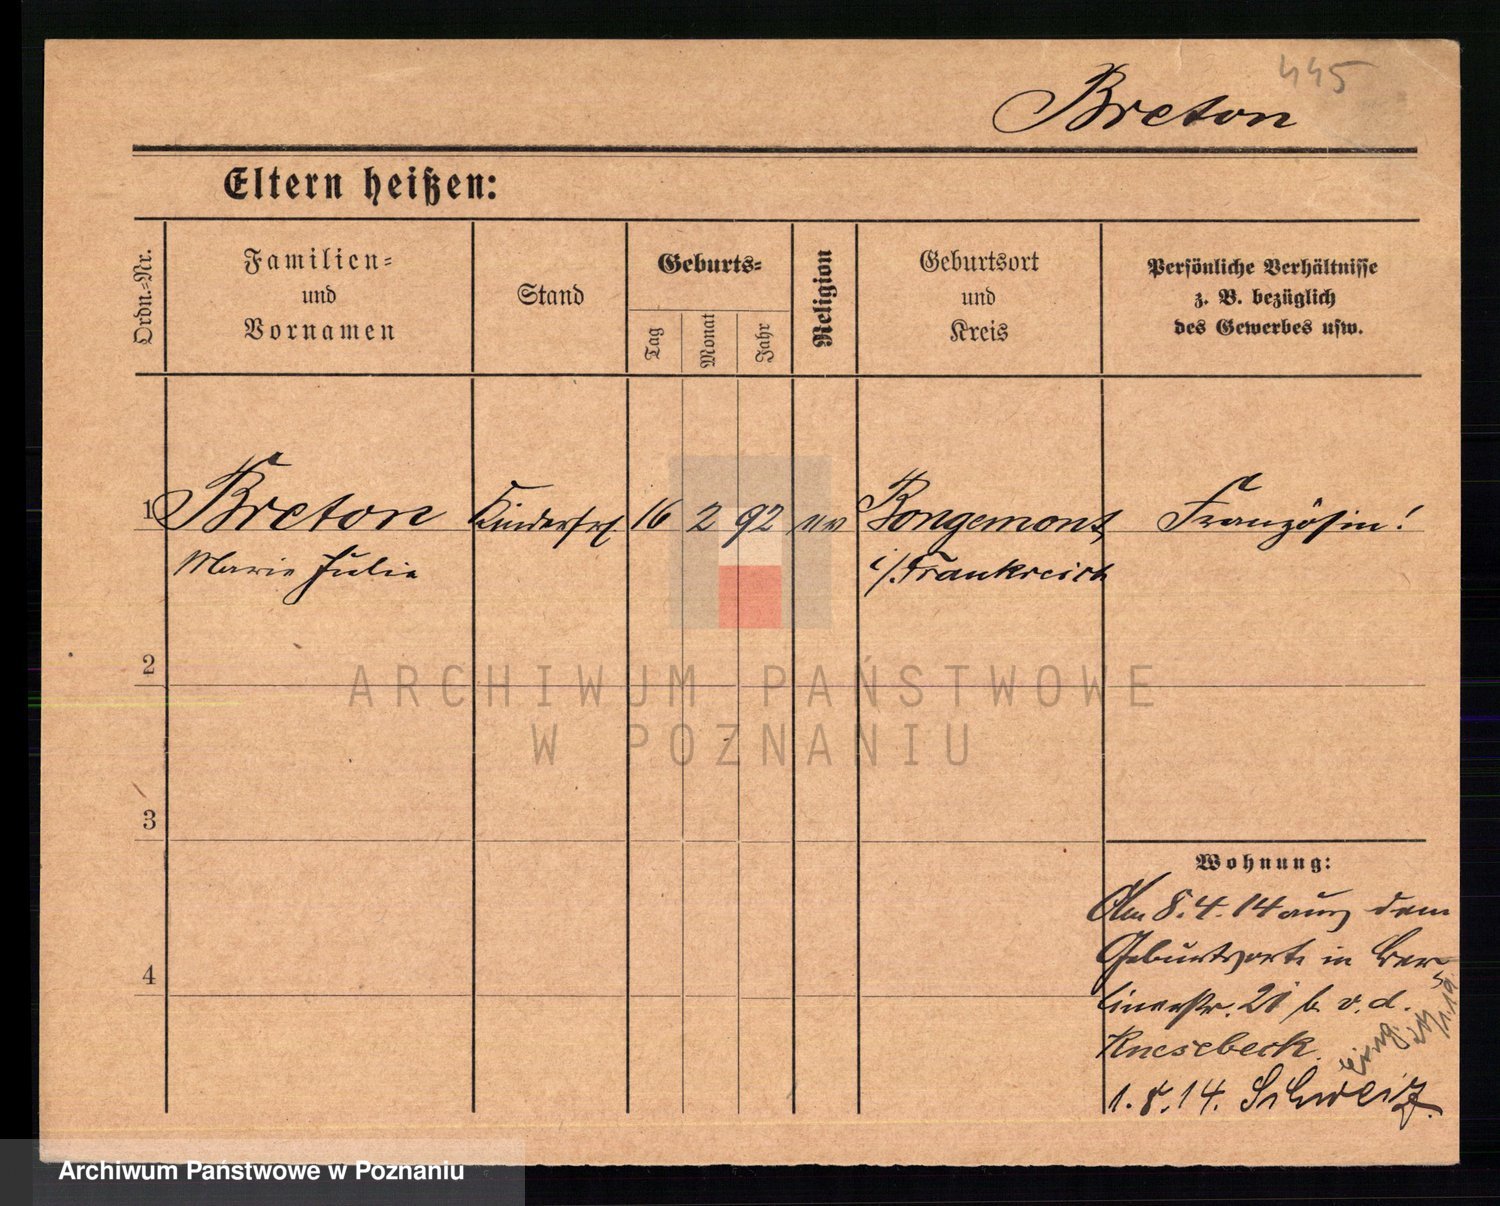 445
Breton
Eltern heißen:
Ordn.-Nr.
Familien-
und
Vornamen
Stand
Geburts-
Tag
Monat
Jahr
Religion
Geburtsort
und
Kreis
Persönliche Verhältnisse
z. B. bezüglich
des Gewerbes usw.
1 Breton Kinderfrl. 16 2 92 Französin!
Marie Julie i/Frankreich
2
ARCHIWUM PAŃSTWOWE
W POZNANIU
3
Wohnung:
Am 8.4.14 aus dem
4 Geburtsorte in Ber-
linerstr. 20 b. v. d.
Knesebeck.
1.8.14. Schweiz.
Archiwum Państwowe w Poznaniu